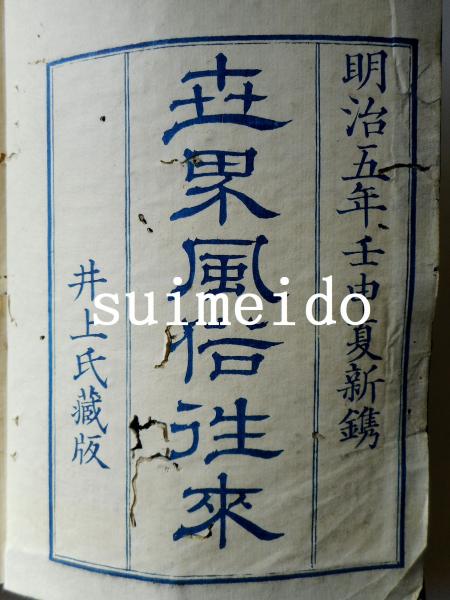 明治五年壬申夏新鐫
世界風俗往來
井上氏藏版
suimeido